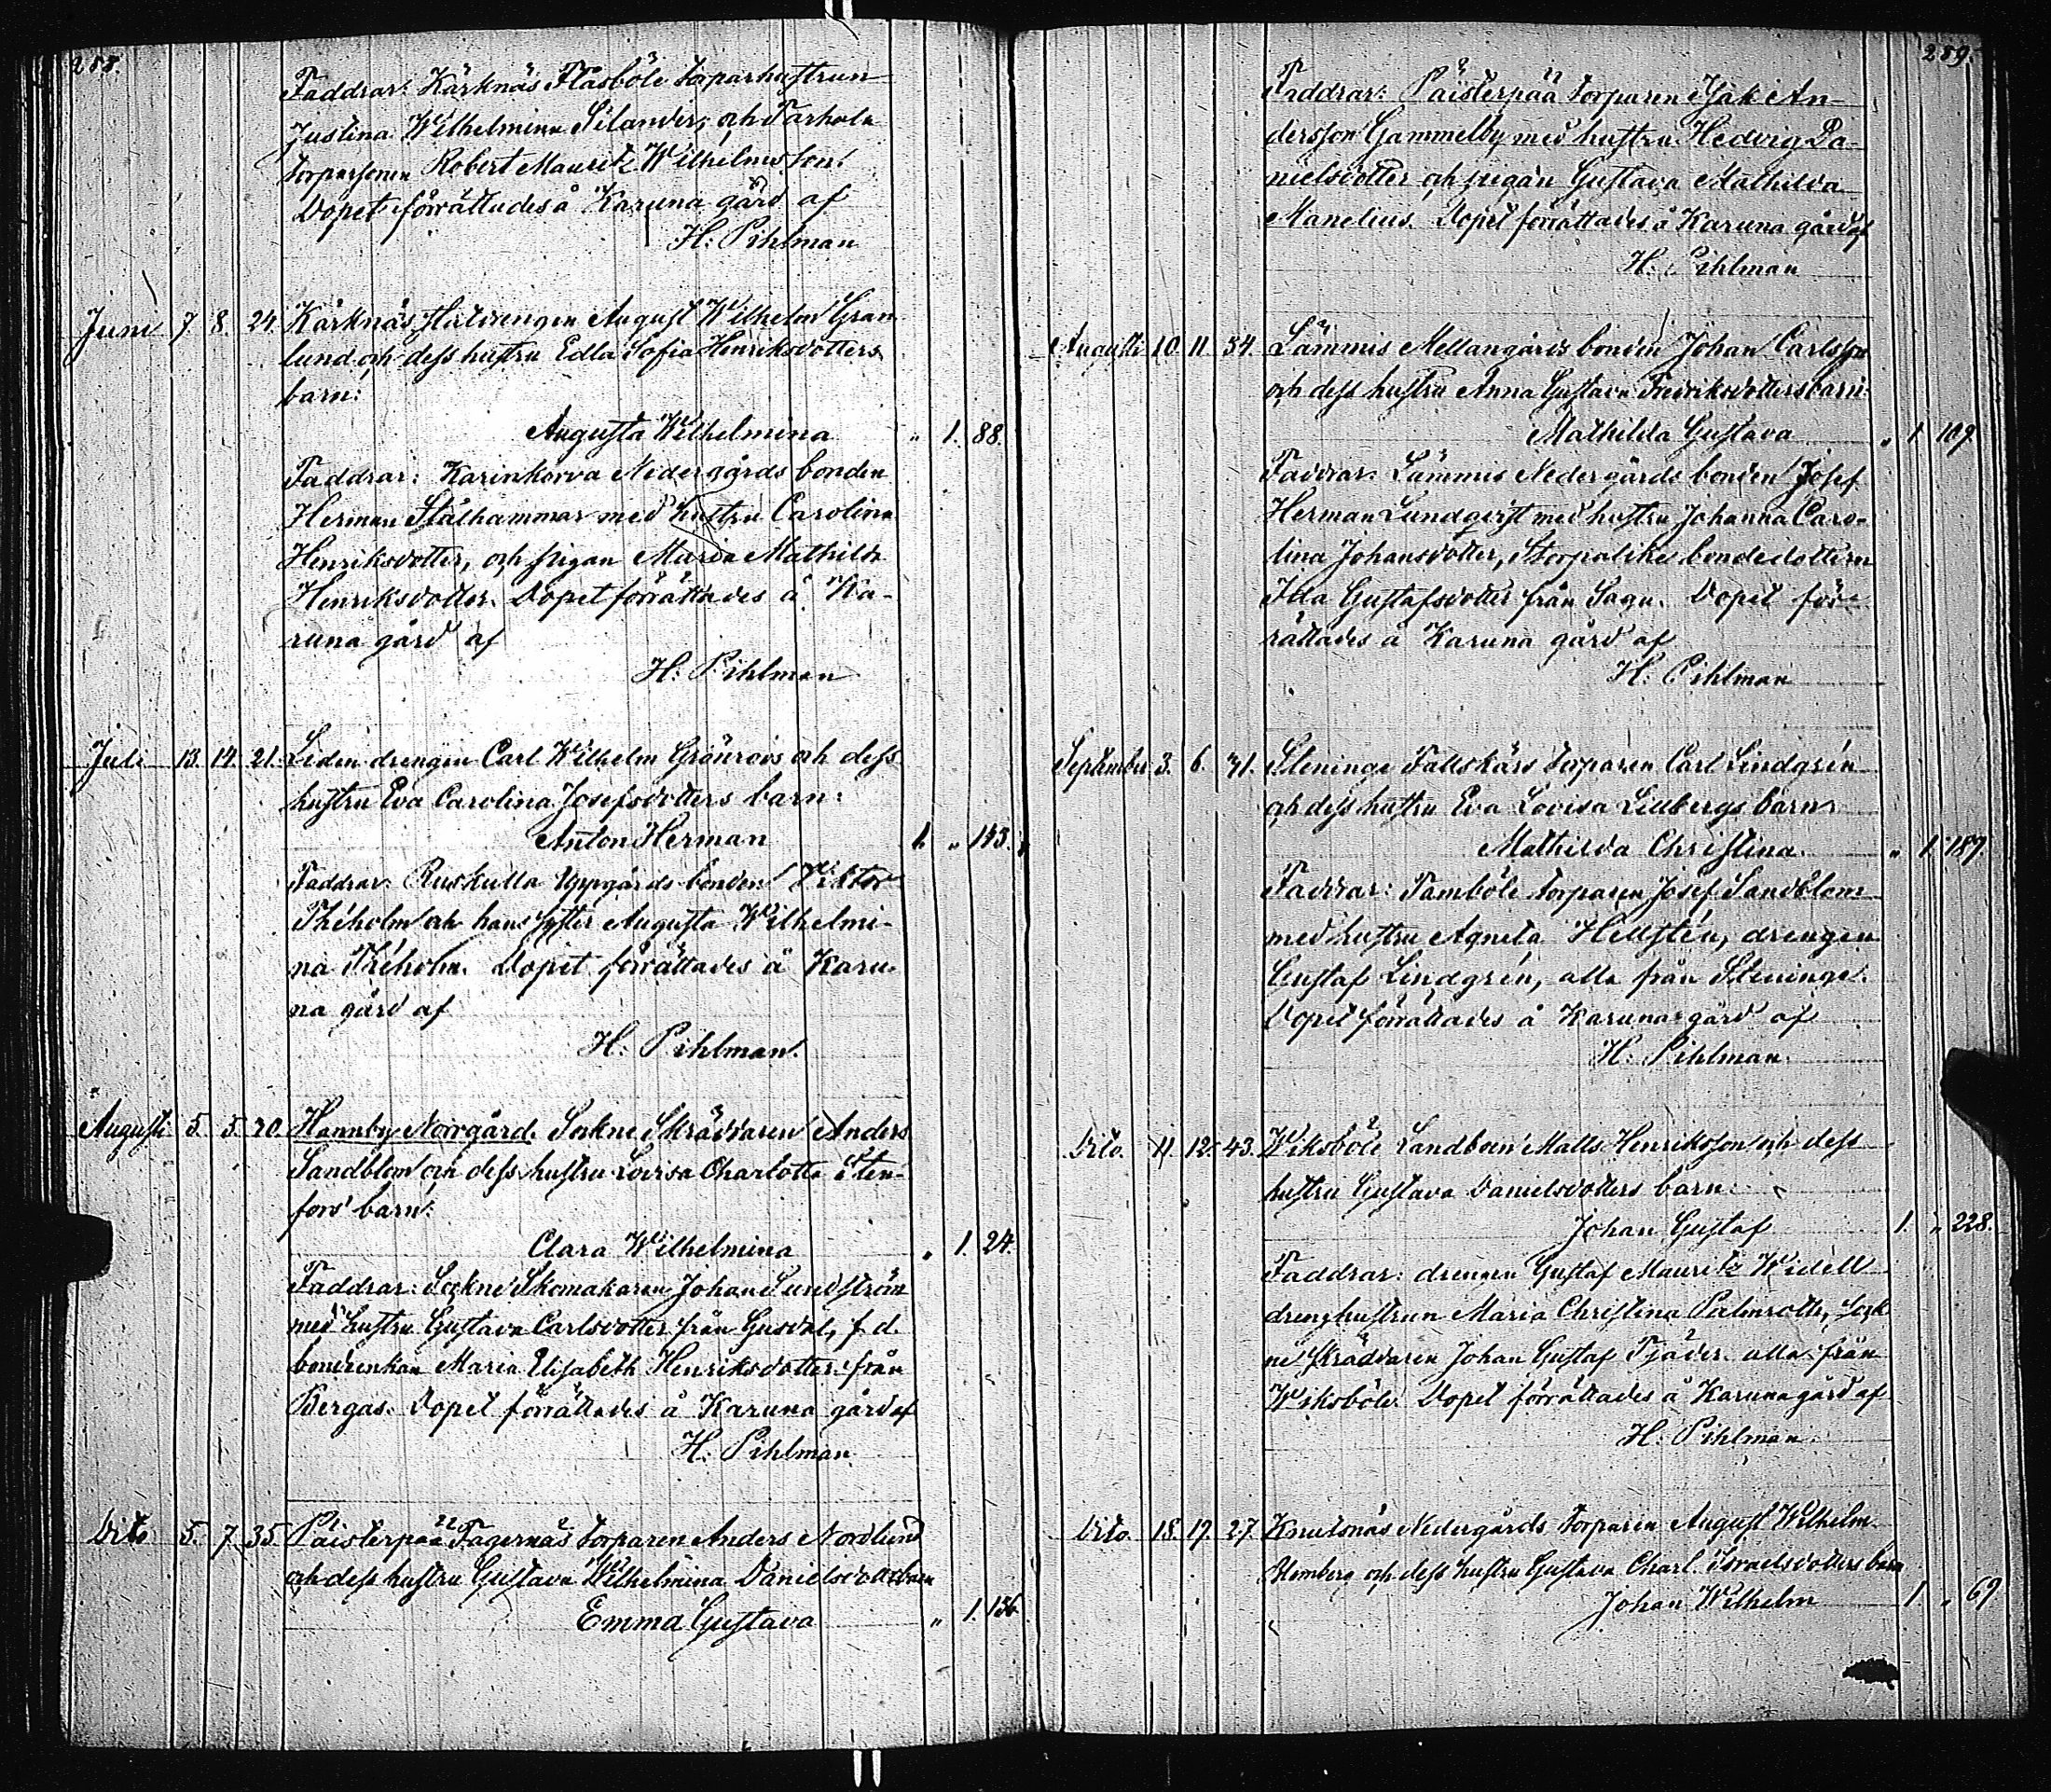 288.
Faddrar: Kärknäs Flåsböle torparhustrun
Justina Wilhelmina Silander, och Tarhala
torparsonen Robert Mauritz Wilhelmsson.
Dopet förrättades å Karuna gård af
H. Pihlman
Juni 7. 8. 24. Kärknäs statdrengen August Wilhelm Gran-
lund och dess hustru Edla Sofia Henriksdotters
barn:
Augusta Wilhelmina " 1. 88.
Faddrar: Karinkorva Nedergårds bonden
Herman Stålhammar med hustru Carolina
Henriksdotter, och pigan Maria Mathilda
Henriksdotter. Dopet förrättades å Ka-
runa gård af
H. Pihlman
Juli 13. 14. 21. Liden drengen Carl Wilhelm Grönroos och dess
hustru Eva Carolina Josefsdotters barn:
Anton Herman 1. " 143.
Faddrar: Ruskulla Uppgårds bonden Viktor
Théholm och hans syster Augusta Wilhelmi-
na Théholm. Dopet förrättades å Karu-
na gård af
H. Pihlman.
Augusti 5. 5. 20. Hannby Norrgård. Sockne Skräddaren Anders
Sandblom och dess hustru Lovisa Charlotta Sten-
fors barn:
Clara Wilhelmina " 1. 24.
Faddrar: Sockne Skomakaren Johan Sundström
med hustru Gustava Carlsdotter från Gusdal, f. d.
bondenkan Maria Elisabeth Henriksdotter från
Bergas. Dopet förrättades å Karuna gård af
H. Pihlman
Dito 5. 7. 35. Päisterpää Fagernäs torparen Anders Nordlund
och dess hustru Gustava Wilhelmina Danielsdotters barn
Emma Gustava " 1. 156.
289.
Faddrar: Päisterpää torparen Isak An-
dersson Gammelby med hustru Hedvig Da-
nielsdotter och pigan Gustava Mathilda
Manelius. Dopet förrättades å Karuna gård af
H. Pihlman
Augusti 10. 11. 34. Lämmis Mellangårds bonden Johan Carlsson
och dess hustru Anna Gustava Fredriksdotters barn:
Mathilda Gustava " 1. 109.
Faddrar: Lämmis Nedergårds bonden Josef
Herman Lundqvist med hustru Johanna Caro-
lina Johansdotter, Storpalike bondedottern
Ida Gustafsdotter från Sagu. Dopet för-
rättades å Karuna gård af
H. Pihlman
September 3. 6. 31. Steninge Fallskärs torparen Carl Lindgrén
och dess hustru Eva Lovisa Lillbergs barn
Mathilda Christina " 1. 187.
Faddrar: Tamböle torparen Josef Sandblom
med hustru Agneta Hellstén, drengen
Gustaf Lindgrén, alla från Steninge.
Dopet förrättades å Karuna gård af
H. Pihlman.
Dito. 11. 12. 43. Wiksböle Landboen Matts Henriksson och dess
hustru Gustava Danielsdotters barn:
Johan Gustaf 1. " 228.
Faddrar: drengen Gustaf Mauritz Widell
drenghustrun Maria Christina Palmroth, Sock-
ne Skräddaren Johan Gustaf Tjäder alla från
Wiksböle. Dopet förrättades å Karuna gård af
H. Pihlman
Dito. 18. 19. 27. Knutsnäs Nedergårds torparen August Wilhelm
och dess hustru Gustava Charl. Israelsdotters barn
Johan Wilhelm 1. " 69.